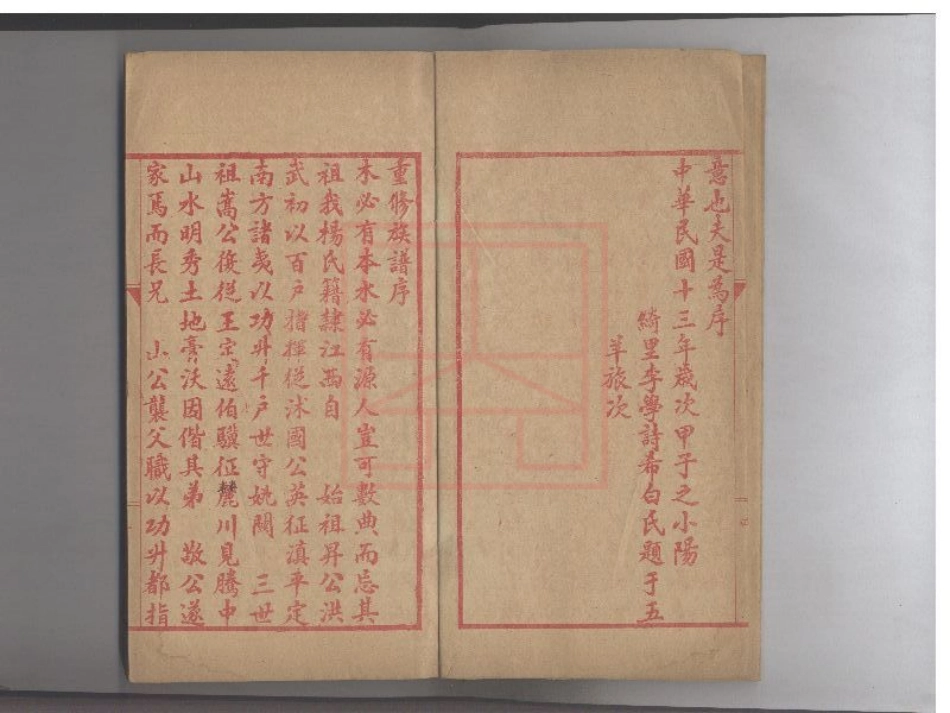 意也夫是為序
中華民國十三年歲次甲子之小陽
綺里李學詩希白氏題于五
羊旅次
重修族譜序
木必有本水必有源人豈可數典而忘其
祖我楊氏籍隸江西自 始祖昇公洪
武初以百户指揮從沭國公英征滇平定
南方諸夷以功升千户世守姚關 三世
祖嵩公後從王宗遠伯驥征麓川見騰中
山水明秀土地膏沃因偕其弟 敬公遂
家焉而長兄 山公襲父職以功升都指